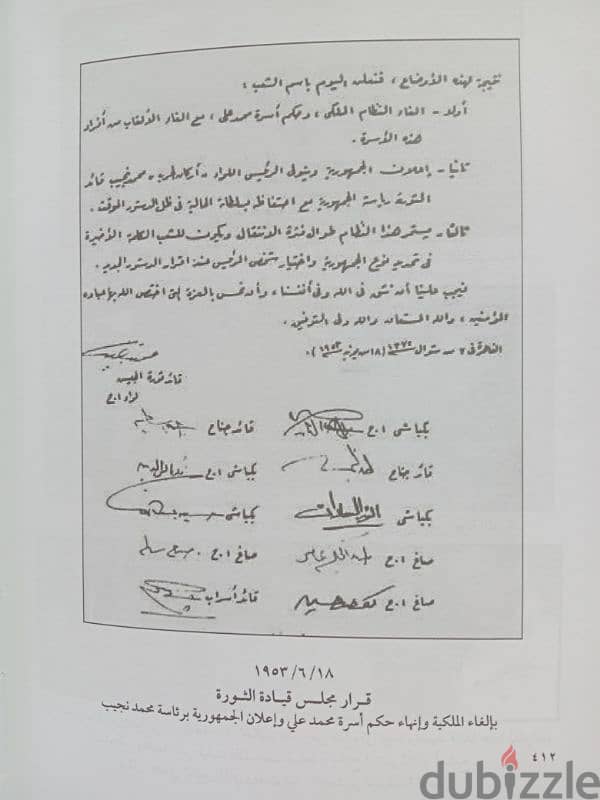 نتيجة لهذه الأوضاع ، فنعلن اليوم باسم الشعب :
أولا - الغاء النظام الملكى ، وحكم أسرة محمد على ، مع الغاء الألقاب من أفراد
هذه الأسرة .
ثانيا - إعلان الجمهورية ويتولى الرئيس اللواء أركان حرب محمد نجيب قائد
الثورة رياسة الجمهورية مع احتفاظه بسلطاته الحالية فى ظل الدستور المؤقت .
ثالثا - يستمر هذا النظام طوال فترة الانتقال ويكون للشعب الكلمة الأخيرة
فى تحديد نوع الجمهورية واختيار شخص الرئيس عند اقرار الدستور الجديد .
فيجب علينا أن نثق فى الله وفى أنفسنا وأن نحس بالعزة التى اختص الله بها عباده
المؤمنين ، والله المستعان والله ولى التوفيق .
القاهرة فى ٧ من شوال ١٣٧٢ (١٨ من يونيه ١٩٥٣) .
قائد ثورة الجيش
لواء ا.ح
بكباشى ا.ح قائد جناح
قائد جناح بكباشى ا.ح
بكباشى أنور السادات بكباشى
صاغ ا.ح صاغ ا.ح
صاغ ا.ح قائد أسراب
١٩٥٣/٦/١٨
قرار مجلس قيادة الثورة
بإلغاء الملكية وإنهاء حكم أسرة محمد علي وإعلان الجمهورية برئاسة محمد نجيب
٤١٢
dubizzle